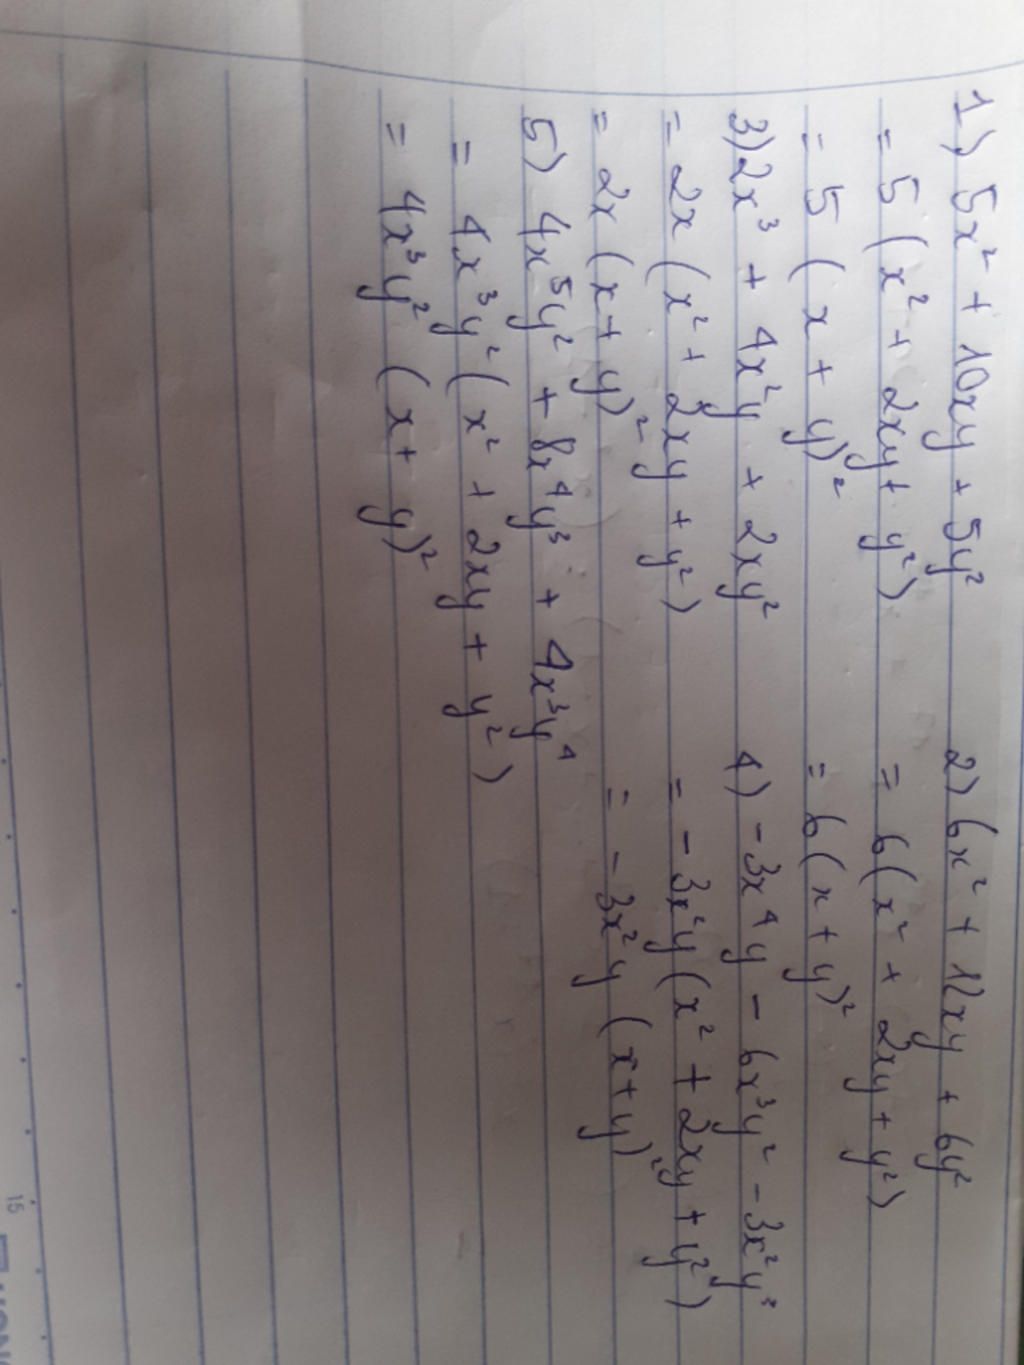 1) 5x² + 10xy + 5y²
= 5 (x² + 2xy + y²)
= 5 (x + y)²
2) 6x² + 12xy + 6y²
= 6(x² + 2xy + y²)
= 6(x + y)²
3) 2x³ + 4x²y + 2xy²
= 2x (x² + 2xy + y²)
= 2x (x + y)²
4) -3x⁴y - 6x³y² - 3x²y³
= -3x²y (x² + 2xy + y²)
= -3x²y (x+y)²
5) 4x⁵y² + 8x⁴y³ + 4x³y⁴
= 4x³y² (x² + 2xy + y²)
= 4x³y² (x+ y)²
15